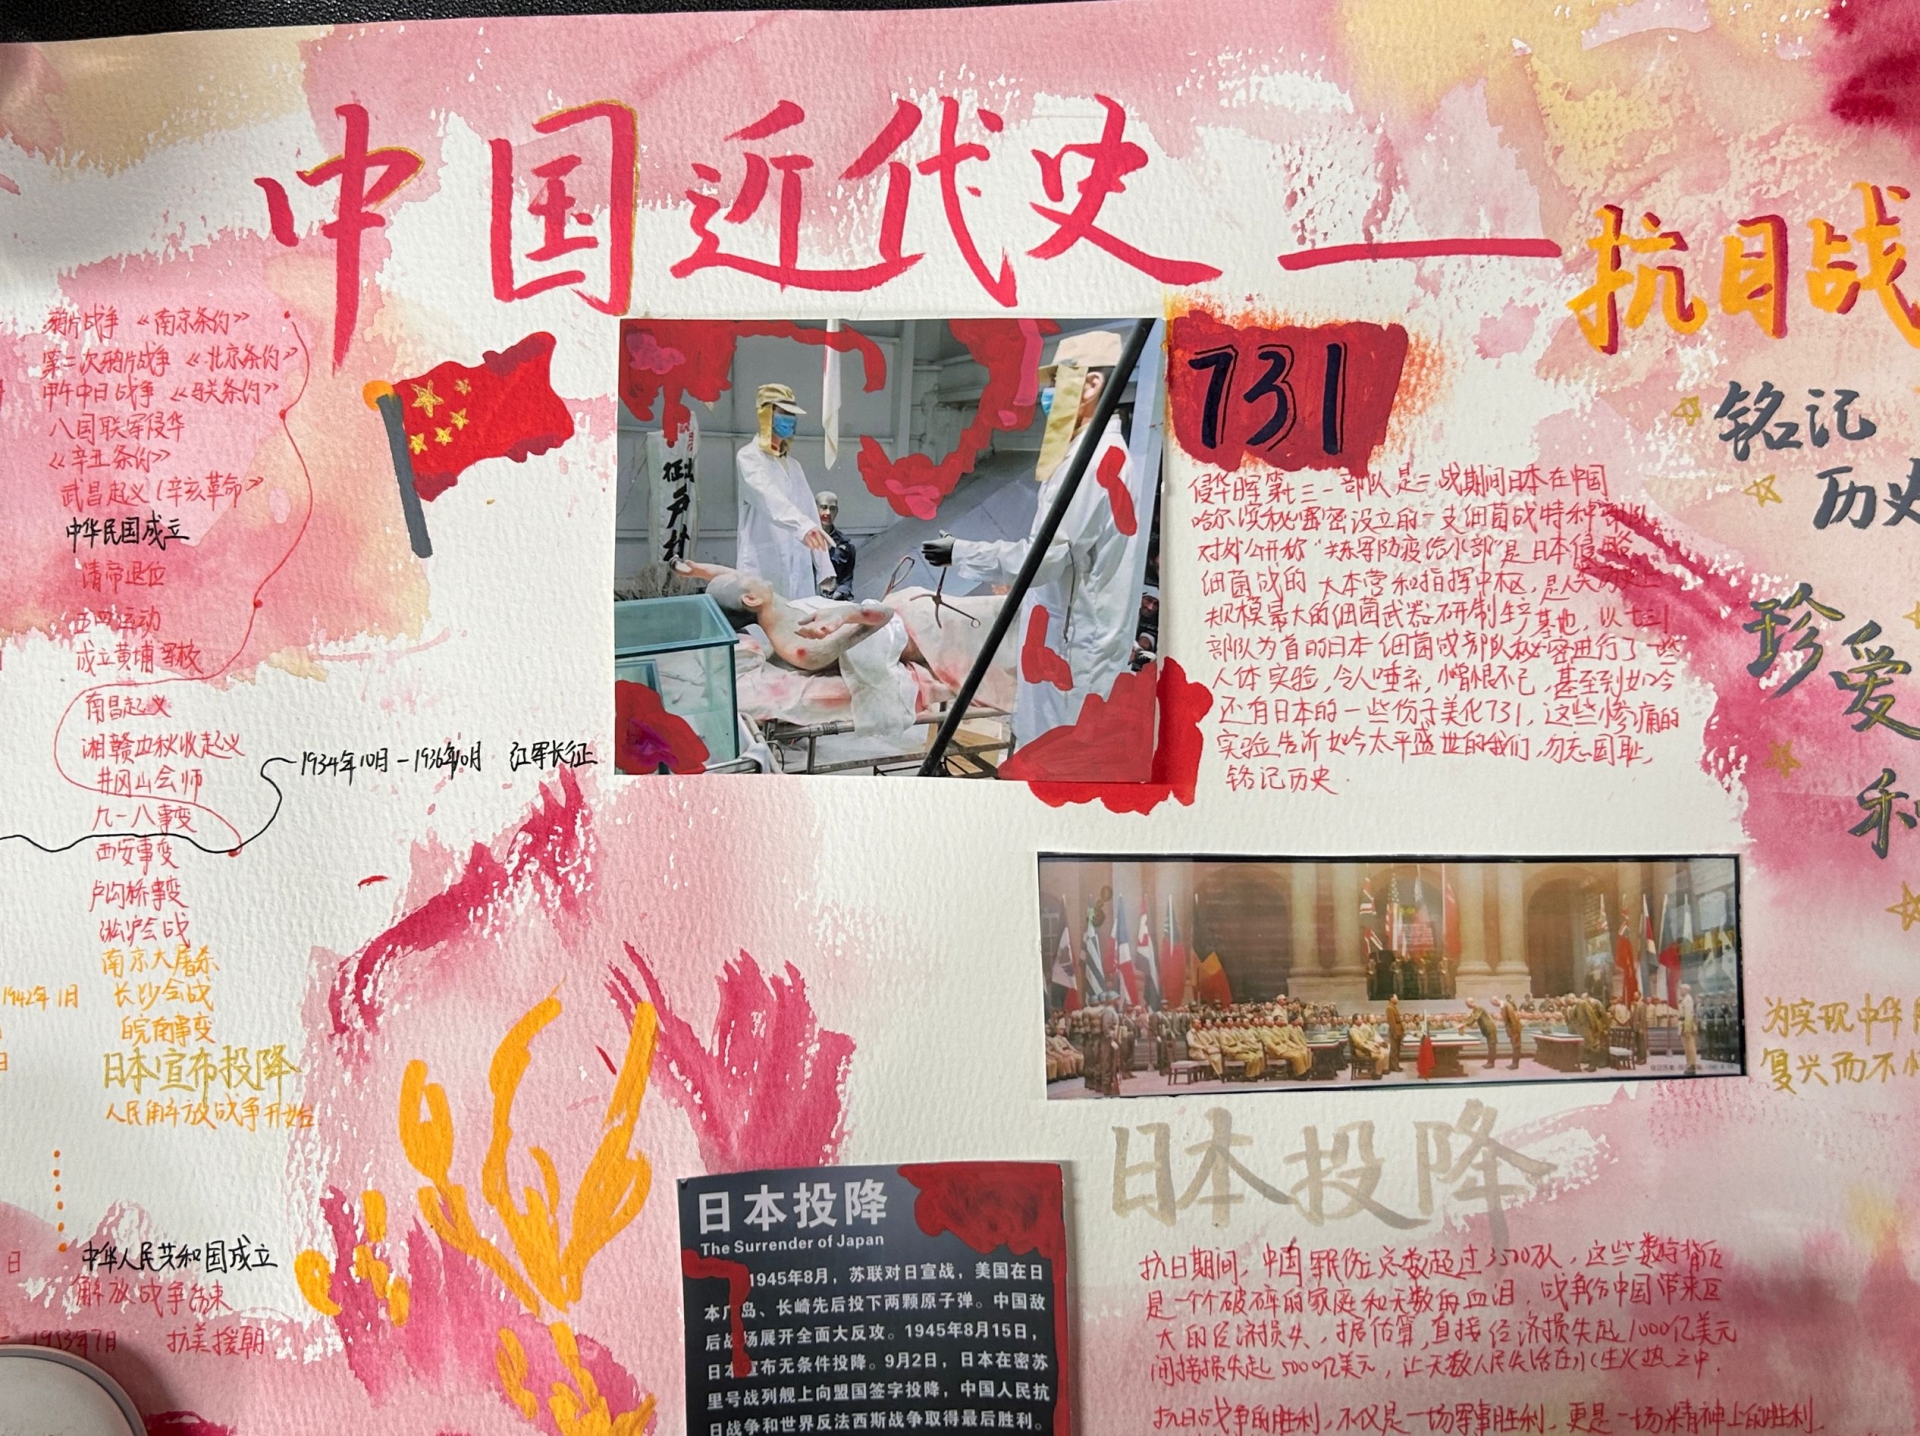 中国近代史——
抗日战
鸦片战争 《南京条约》
第二次鸦片战争 《北京条约》
甲午中日战争 《马关条约》
八国联军侵华
《辛丑条约》
武昌起义(辛亥革命》
中华民国成立
清帝退位
五四运动
成立黄埔军校
南昌起义
湘赣边秋收起义
井冈山会师
九一八事变
1934年10月-1936年10月 红军长征
西安事变
卢沟桥事变
淞沪会战
南京大屠杀
1942年1月 长沙会战
皖南事变
日本宣布投降
人民解放战争开始
日 中华人民共和国成立
解放战争结束
1953年7月 抗美援朝
731
侵华日军第七三一部队是二战期间日本在中国
哈尔滨秘密设立的一支细菌战特种部队
对外公开称"关东军防疫给水部"是日本侵略
细菌战的大本营和指挥中枢，是人类历史上
规模最大的细菌武器研制生产基地，以七三一
部队为首的日本细菌战部队秘密进行了一些
人体实验，令人唾弃，憎恨不已，甚至到如今
还有日本的一些份子美化731，这些惨痛的
实验告诉如今太平盛世的我们，勿忘国耻，
铭记历史．
铭记
历史
珍
爱
和
为实现中华
复兴而不
日本投降
The Surrender of Japan
1945年8月，苏联对日宣战，美国在日
本广岛、长崎先后投下两颗原子弹。中国敌
后战场展开全面大反攻。1945年8月15日，
日本宣布无条件投降。9月2日，日本在密苏
里号战列舰上向盟国签字投降，中国人民抗
日战争和世界反法西斯战争取得最后胜利。
日本投降
抗日期间，中国军民伤亡总数超过3500万人，这些数字背后
是一个个破碎的家庭和无数的血泪，战争给中国带来巨
大的经济损失，据估算，直接经济损失超1000亿美元
间接损失超5000亿美元，让无数人民失活在水生火热之中．
抗日战争的胜利，不仅是一场军事胜利，更是一场精神上的胜利．